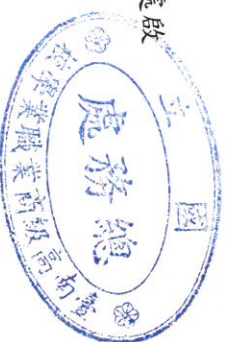 啟
國立
臺南高級商業職業學校
總務處